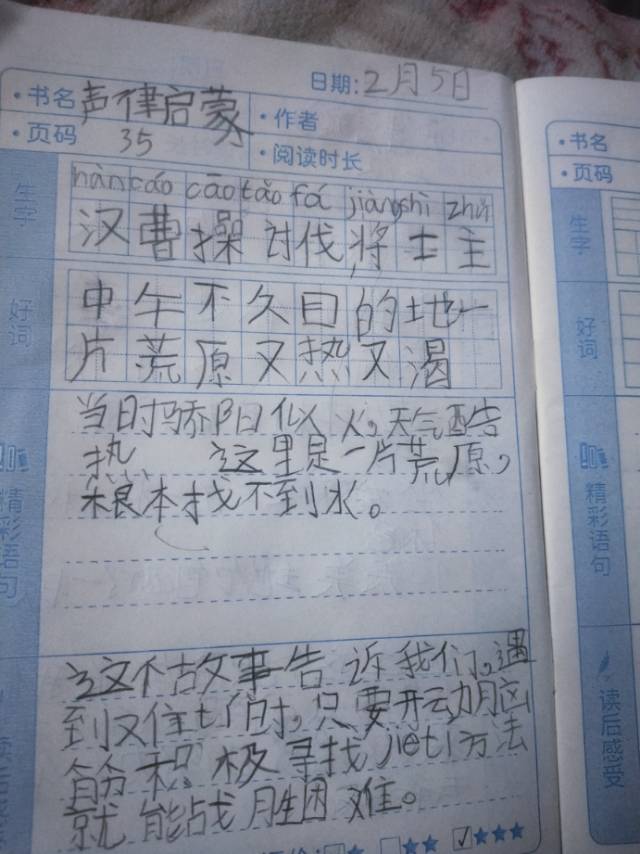 日期: 2月5日
·书名 声律启蒙
·作者
·页码 35
·阅读时长
生字
hàn cáo cāo tǎo fá jiàng shì zhǔ
汉曹操讨伐,将士主
好词
中午不久目的地一
片荒原又热又渴
精彩语句
当时骄阳似火,天气酷
热 这里是一片荒原,
根本找不到水。
这个故事告诉我们,遇
到又住 时,只要开动脑
筋积极寻找 方法
就能战胜困难。
★★ ✓★★★
·书名
·页码
生字
好词
精彩语句
读后感受